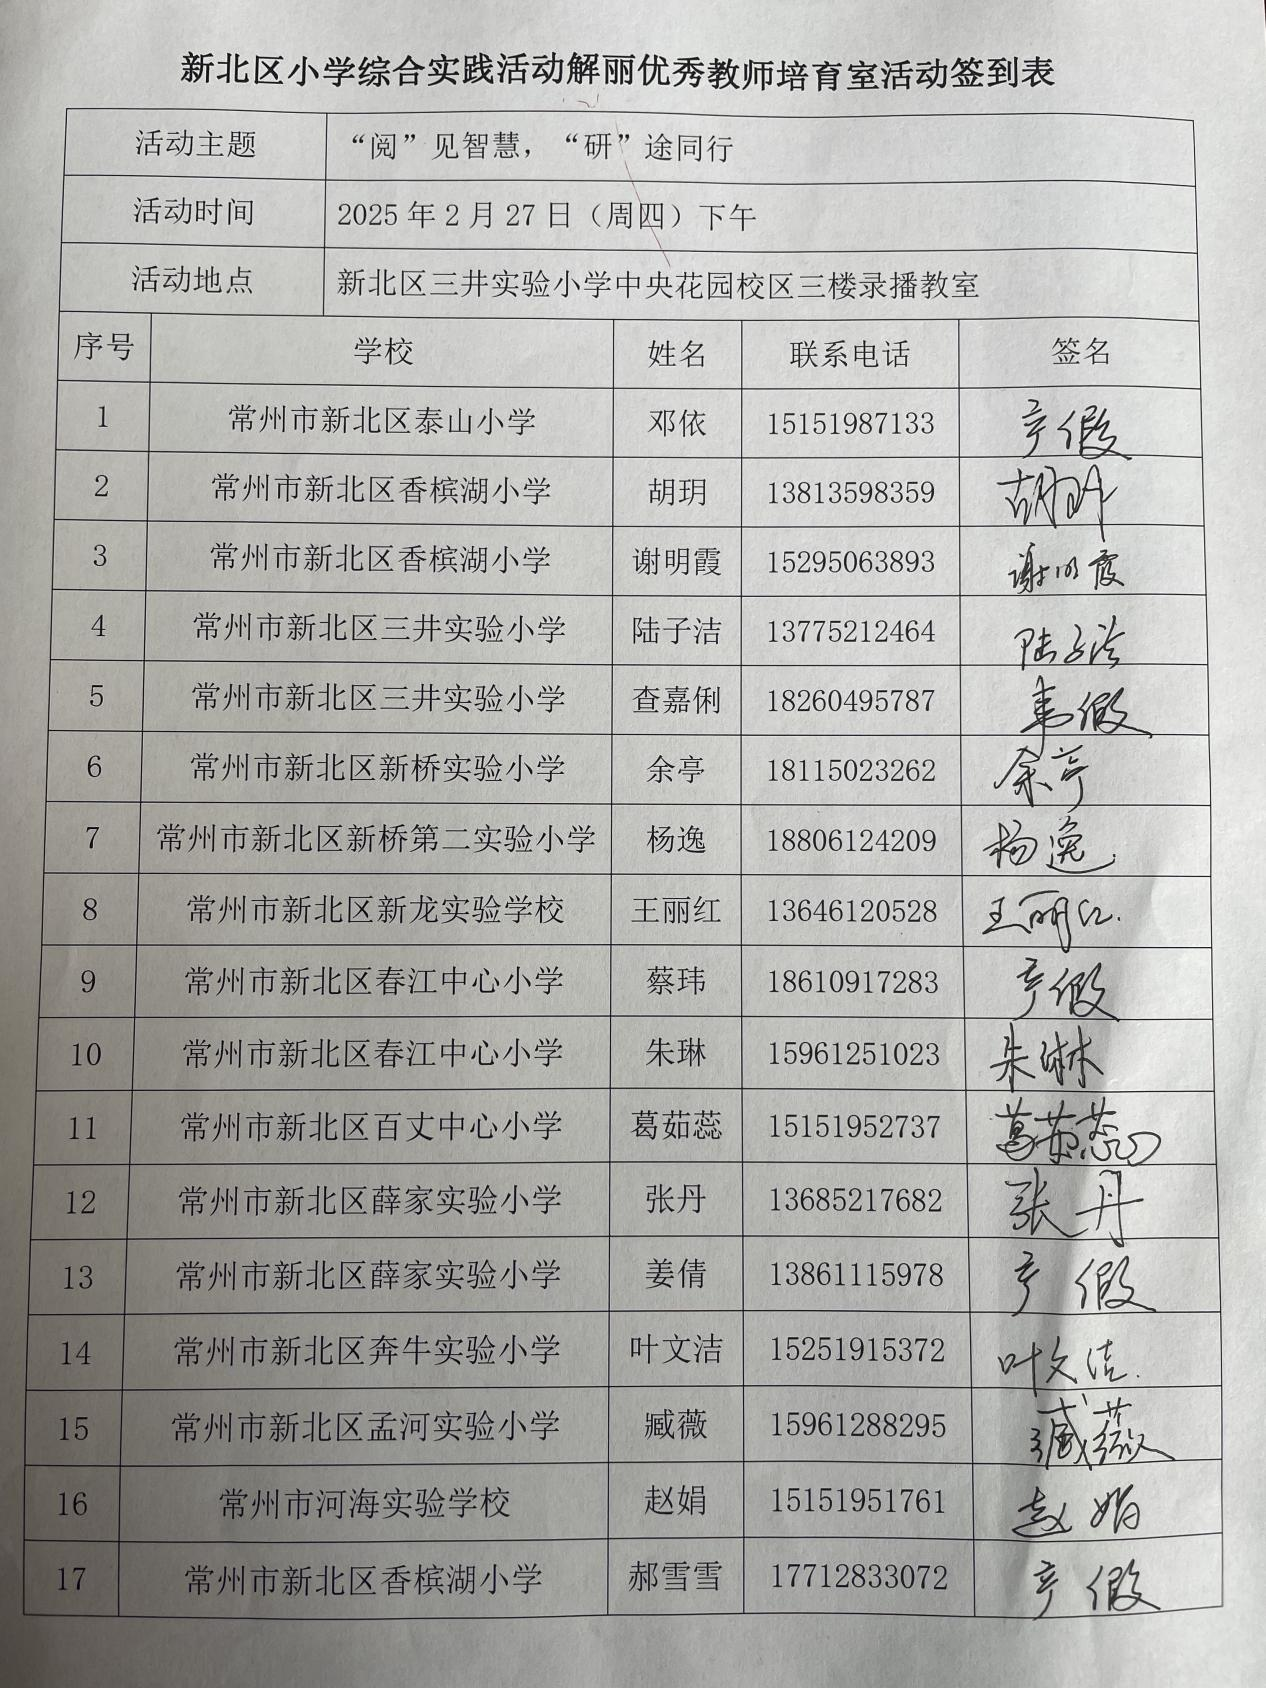 新北区小学综合实践活动解丽优秀教师培育室活动签到表
活动主题 “阅”见智慧，“研”途同行
活动时间 2025年2月27日（周四）下午
活动地点 新北区三井实验小学中央花园校区三楼录播教室
序号 学校 姓名 联系电话 签名
1 常州市新北区泰山小学 邓依 15151987133 产假
2 常州市新北区香槟湖小学 胡玥 13813598359 胡玥
3 常州市新北区香槟湖小学 谢明霞 15295063893 谢明霞
4 常州市新北区三井实验小学 陆子洁 13775212464 陆子洁
5 常州市新北区三井实验小学 查嘉俐 18260495787 事假
6 常州市新北区新桥实验小学 余亭 18115023262 余亭
7 常州市新北区新桥第二实验小学 杨逸 18806124209 杨逸
8 常州市新北区新龙实验学校 王丽红 13646120528 王丽红.
9 常州市新北区春江中心小学 蔡玮 18610917283 产假
10 常州市新北区春江中心小学 朱琳 15961251023 朱琳
11 常州市新北区百丈中心小学 葛茹蕊 15151952737 葛茹蕊
12 常州市新北区薛家实验小学 张丹 13685217682 张丹
13 常州市新北区薛家实验小学 姜倩 13861115978 产假
14 常州市新北区奔牛实验小学 叶文洁 15251915372 叶文洁.
15 常州市新北区孟河实验小学 臧薇 15961288295 臧薇
16 常州市河海实验学校 赵娟 15151951761 赵娟
17 常州市新北区香槟湖小学 郝雪雪 17712833072 产假